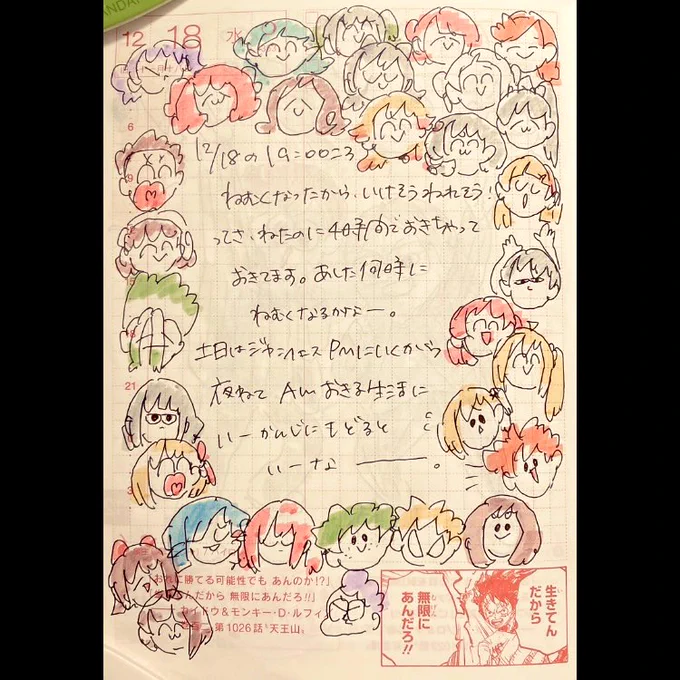 12 18 水
6
12/18の19:00ころ
ねむくなったから、いけそうねれそう!
ってさ、ねたのに4時間でおきちゃって
おきてます。あした何時に
ねむくなるかなー。
土日はジャンフェス PMにいくから
21
夜ねて Amおきる生活に
いーかんじにもどると
いーなー。
おれに勝てる可能性でも あんのか!?」
んだから 無限にあんだろ!!」
ドウ&モンキー・D・ルフィ
第1026話"天王山"
生きてん
だから
無限に
あんだろ!!